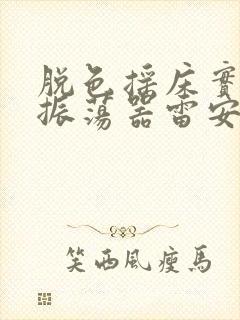 脱色摇床實
振荡器雷安
笑西风瘦马